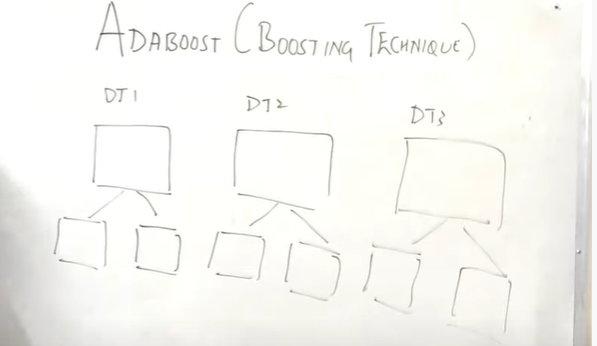 ADABOOST (BOOSTING TECHNIQUE)
DT1 DT2 DT3